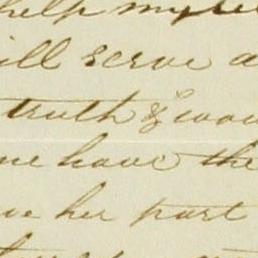 help myse
ill serve a
truth & wou
me have the
ve her part